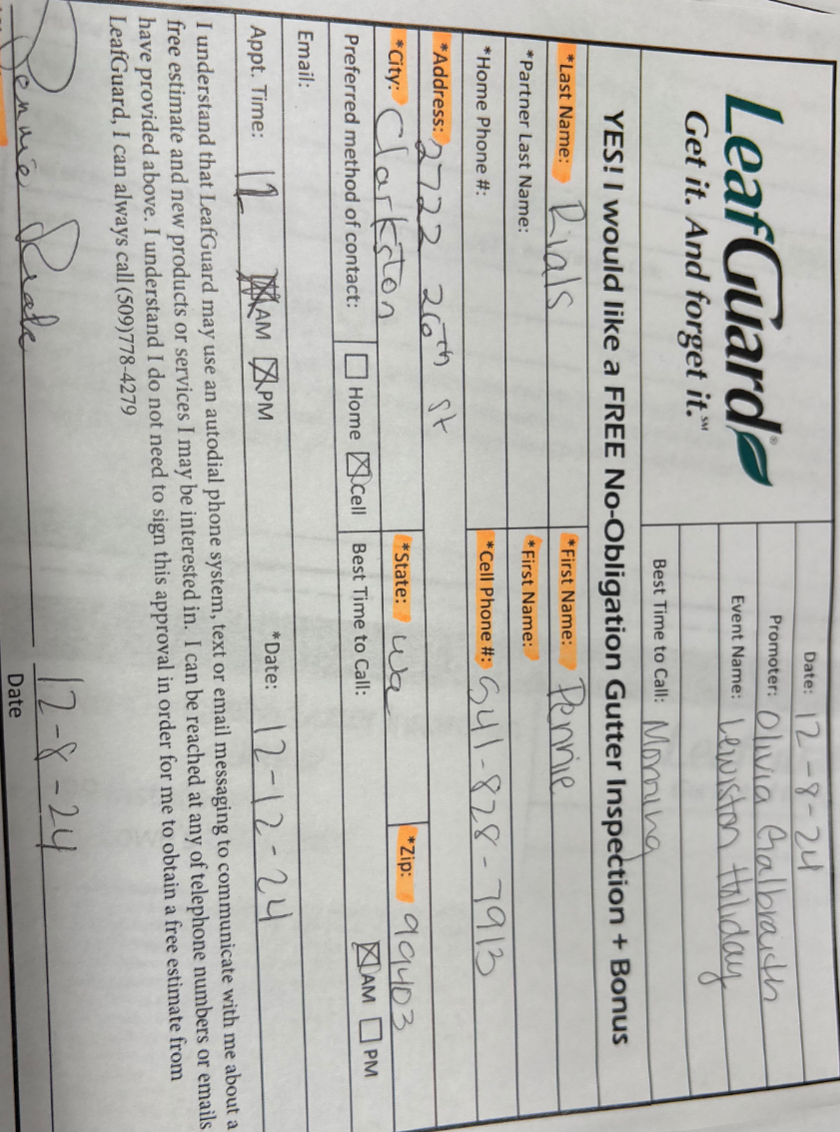 LeafGuard®
Get it. And forget it.℠
Date: 12-8-24
Promoter: Olivia Galbraith
Event Name: Lewiston Holiday
Best Time to Call: Morning
YES! I would like a FREE No-Obligation Gutter Inspection + Bonus
*Last Name: Rials *First Name: Pennie
*Partner Last Name: *First Name:
*Home Phone #: *Cell Phone #: 541-828-7913
*Address: 2722 26th St
*City: Clarkston *State: Wa *Zip: 99403
Preferred method of contact: Home Cell Best Time to Call: AM PM
Email:
Appt. Time: 12 AM PM *Date: 12-12-24
I understand that LeafGuard may use an autodial phone system, text or email messaging to communicate with me about a
free estimate and new products or services I may be interested in. I can be reached at any of telephone numbers or emails
have provided above. I understand I do not need to sign this approval in order for me to obtain a free estimate from
LeafGuard, I can always call (509)778-4279
Pennie 12-8-24
Date